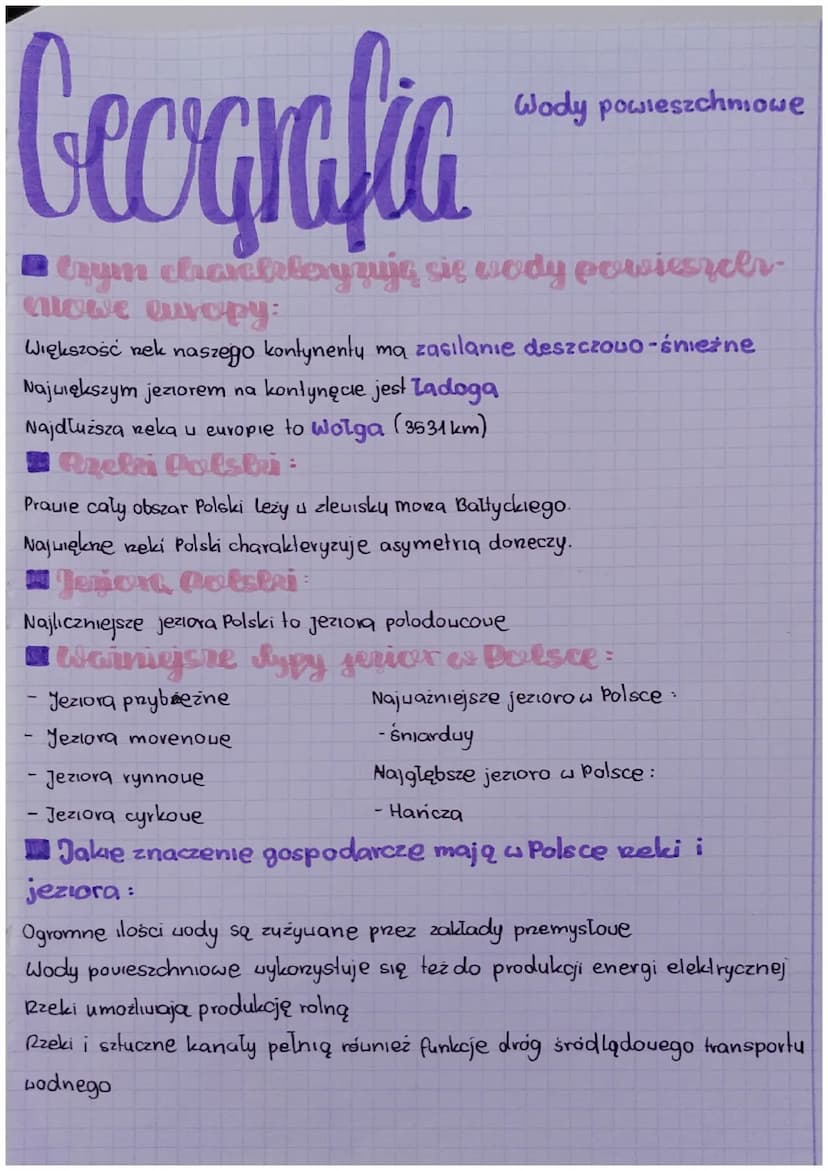 Geografia
Wody powieszchniowe
Czym charakteryzują się wody powieszch-
niowe europy:
Większość rzek naszego kontynentu ma zasilanie deszczowo-śnieżne
Największym jeziorem na kontynęcie jest Ładoga
Najdłuższa rzeka w europie to Wołga (3531 km)
Rzeki Polski:
Prawie cały obszar Polski leży w zlewisku morza Bałtyckiego.
Największe rzeki Polski charakteryzuje asymetria dorzeczy.
Jeziora Polski:
Najliczniejsze jeziora Polski to jeziora polodowcowe
Ważniejsze typy jezior w Polsce:
- Jeziora przybrzeżne
- Jeziora morenowe
- Jeziora rynnowe
- Jeziora cyrkowe
Najważniejsze jezioro w Polsce:
- Śniardwy
Najgłębsze jezioro w Polsce:
- Hańcza
Jakie znaczenie gospodarcze mają w Polsce rzeki i
jeziora:
Ogromne ilości wody są zużywane przez zakłady przemysłowe
Wody powieszchniowe wykorzystuje się też do produkcji energi elektrycznej
Rzeki umożliwiają produkcję rolną
Rzeki i sztuczne kanały pełnią również funkcje dróg śródlądowego transportu
wodnego